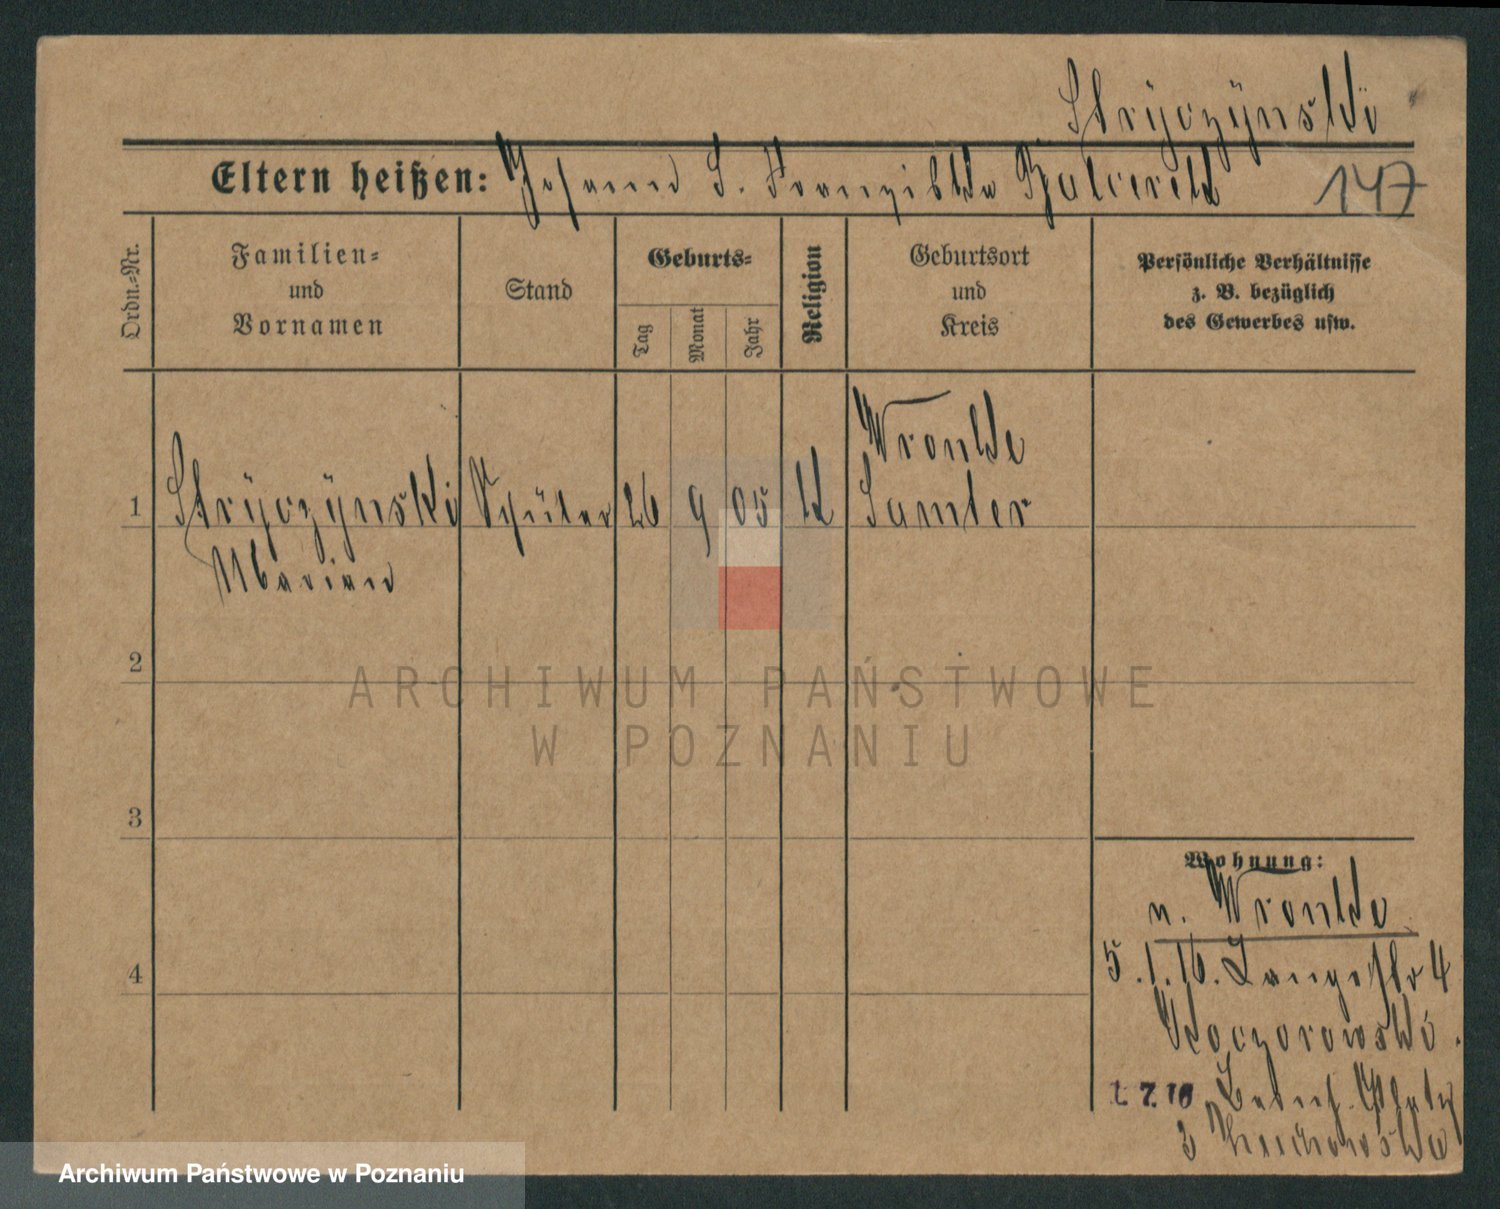 Stryczynski
Eltern heißen: Johann S. Franziska Balcerek
147
Ordn.-Nr.
Familien-
und
Vornamen
Stand
Geburts-
Tag
Monat
Jahr
Religion
Geburtsort
und
Kreis
Persönliche Verhältnisse
z. B. bezüglich
des Gewerbes usw.
Wronke
1 Stryczynski Schüler 26 9 05 k Samter
Marian
2
ARCHIWUM PAŃSTWOWE
W POZNANIU
3
Wohnung:
n. Wronke
4
5.1.16. Langestr 4
Koczorowski.
1. 7. 16
3
Archiwum Państwowe w Poznaniu